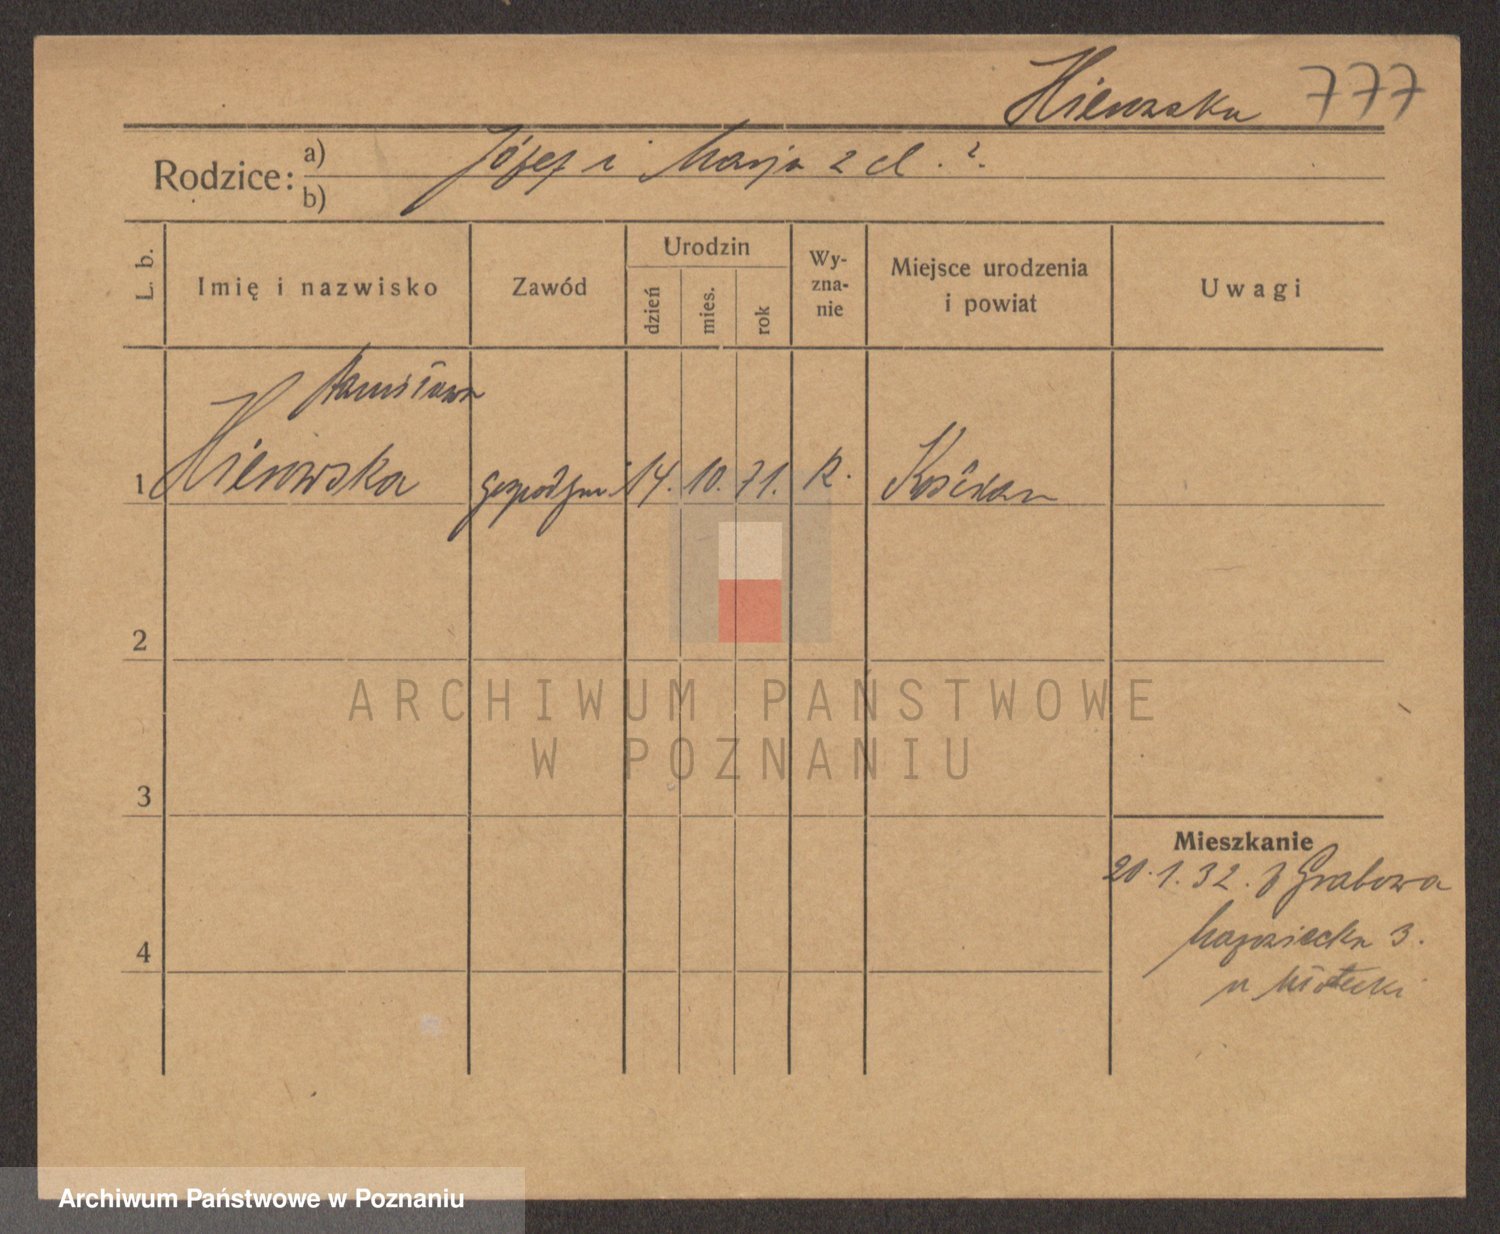 777
Rodzice: a) Józef i Marja z d. ?.
b)
L. b.
Imię i nazwisko
Zawód
Urodzin
dzień
mies.
rok
Wy-
zna-
nie
Miejsce urodzenia
i powiat
Uwagi
Stanisława
1 Hierowska gospodyni 14. 10. 71. R. Kościan
2
ARCHIWUM PAŃSTWOWE
W POZNANIU
3
Mieszkanie
20.1.32. z Grabowa
3.
4
u
Archiwum Państwowe w Poznaniu